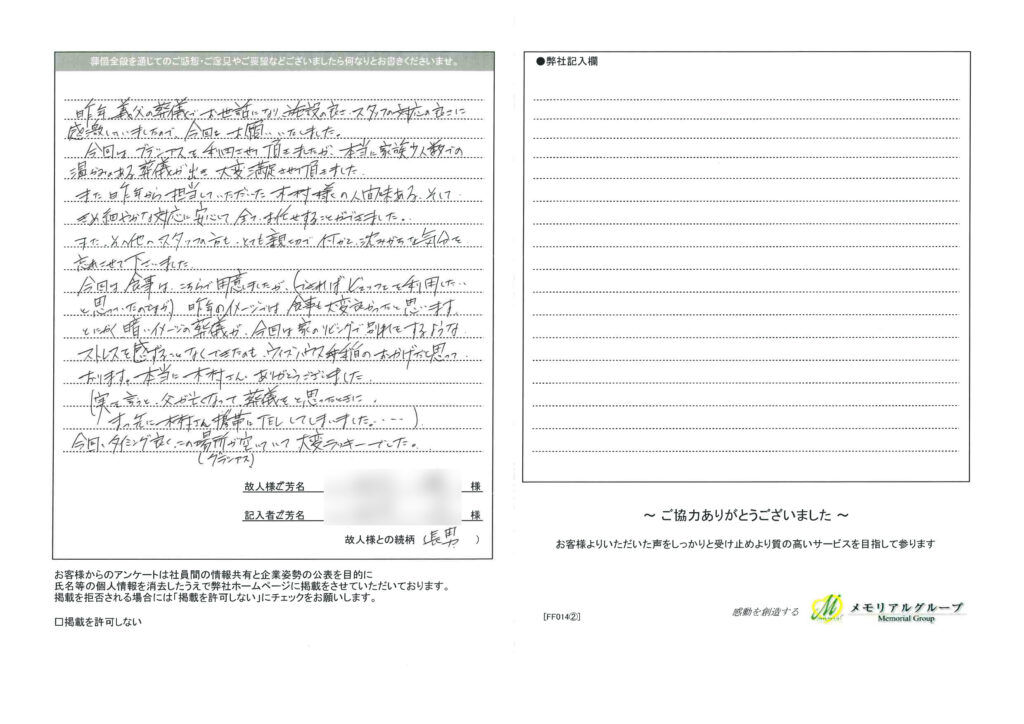 葬儀全般を通じてのご感想・ご意見やご要望などございましたら何なりとお書きくださいませ。
昨年、義父の葬儀でお世話になり、施設の良さ、スタッフの対応の良さに
感激していましたので、今回もお願いいたしました。
今回は、グランナスを利用させて頂きましたが、本当に家族少人数での
温かみのある葬儀が出き、大変満足させて頂きました。
また昨年から担当していただいた木村様の人間味ある、そして
きめ細やかな対応に安心して全てお任せすることができました。
また、その他のスタッフの方も、とても親切で何かと沈みがちな気分を
忘れさせて下さいました。
今回は食事は、こちらで用意しましたが、(できればビュッフェを利用したい
と思っていたのですが) 昨年のイメージでは食事も大変良かったと思います。
とにかく暗いイメージの葬儀が、今回は家のリビングで別れをするような
ストレスを感ずることなくできたのも、ウィズハウス手稲のおかげだと思って
おります。本当に木村さん、ありがとうございました。
(実を言うと、父が亡くなって、葬儀をと思ったときに、
まっ先に木村さん携帯にTELしてしまいました。・・・・)
今回、タイミング良く、この場所が空いていて大変ラッキーでした。
(グランナス)
故人様ご芳名 様
記入者ご芳名 様
故人様との続柄 長男 )
お客様からのアンケートは社員間の情報共有と企業姿勢の公表を目的に
氏名等の個人情報を消去したうえで弊社ホームページに掲載をさせていただいております。
掲載を拒否される場合には「掲載を許可しない」にチェックをお願いします。
□掲載を許可しない
●弊社記入欄
～ ご協力ありがとうございました ～
お客様よりいただいた声をしっかりと受け止めより質の高いサービスを目指して参ります
[FF014②]
感動を創造する
メモリアルグループ
Memorial Group